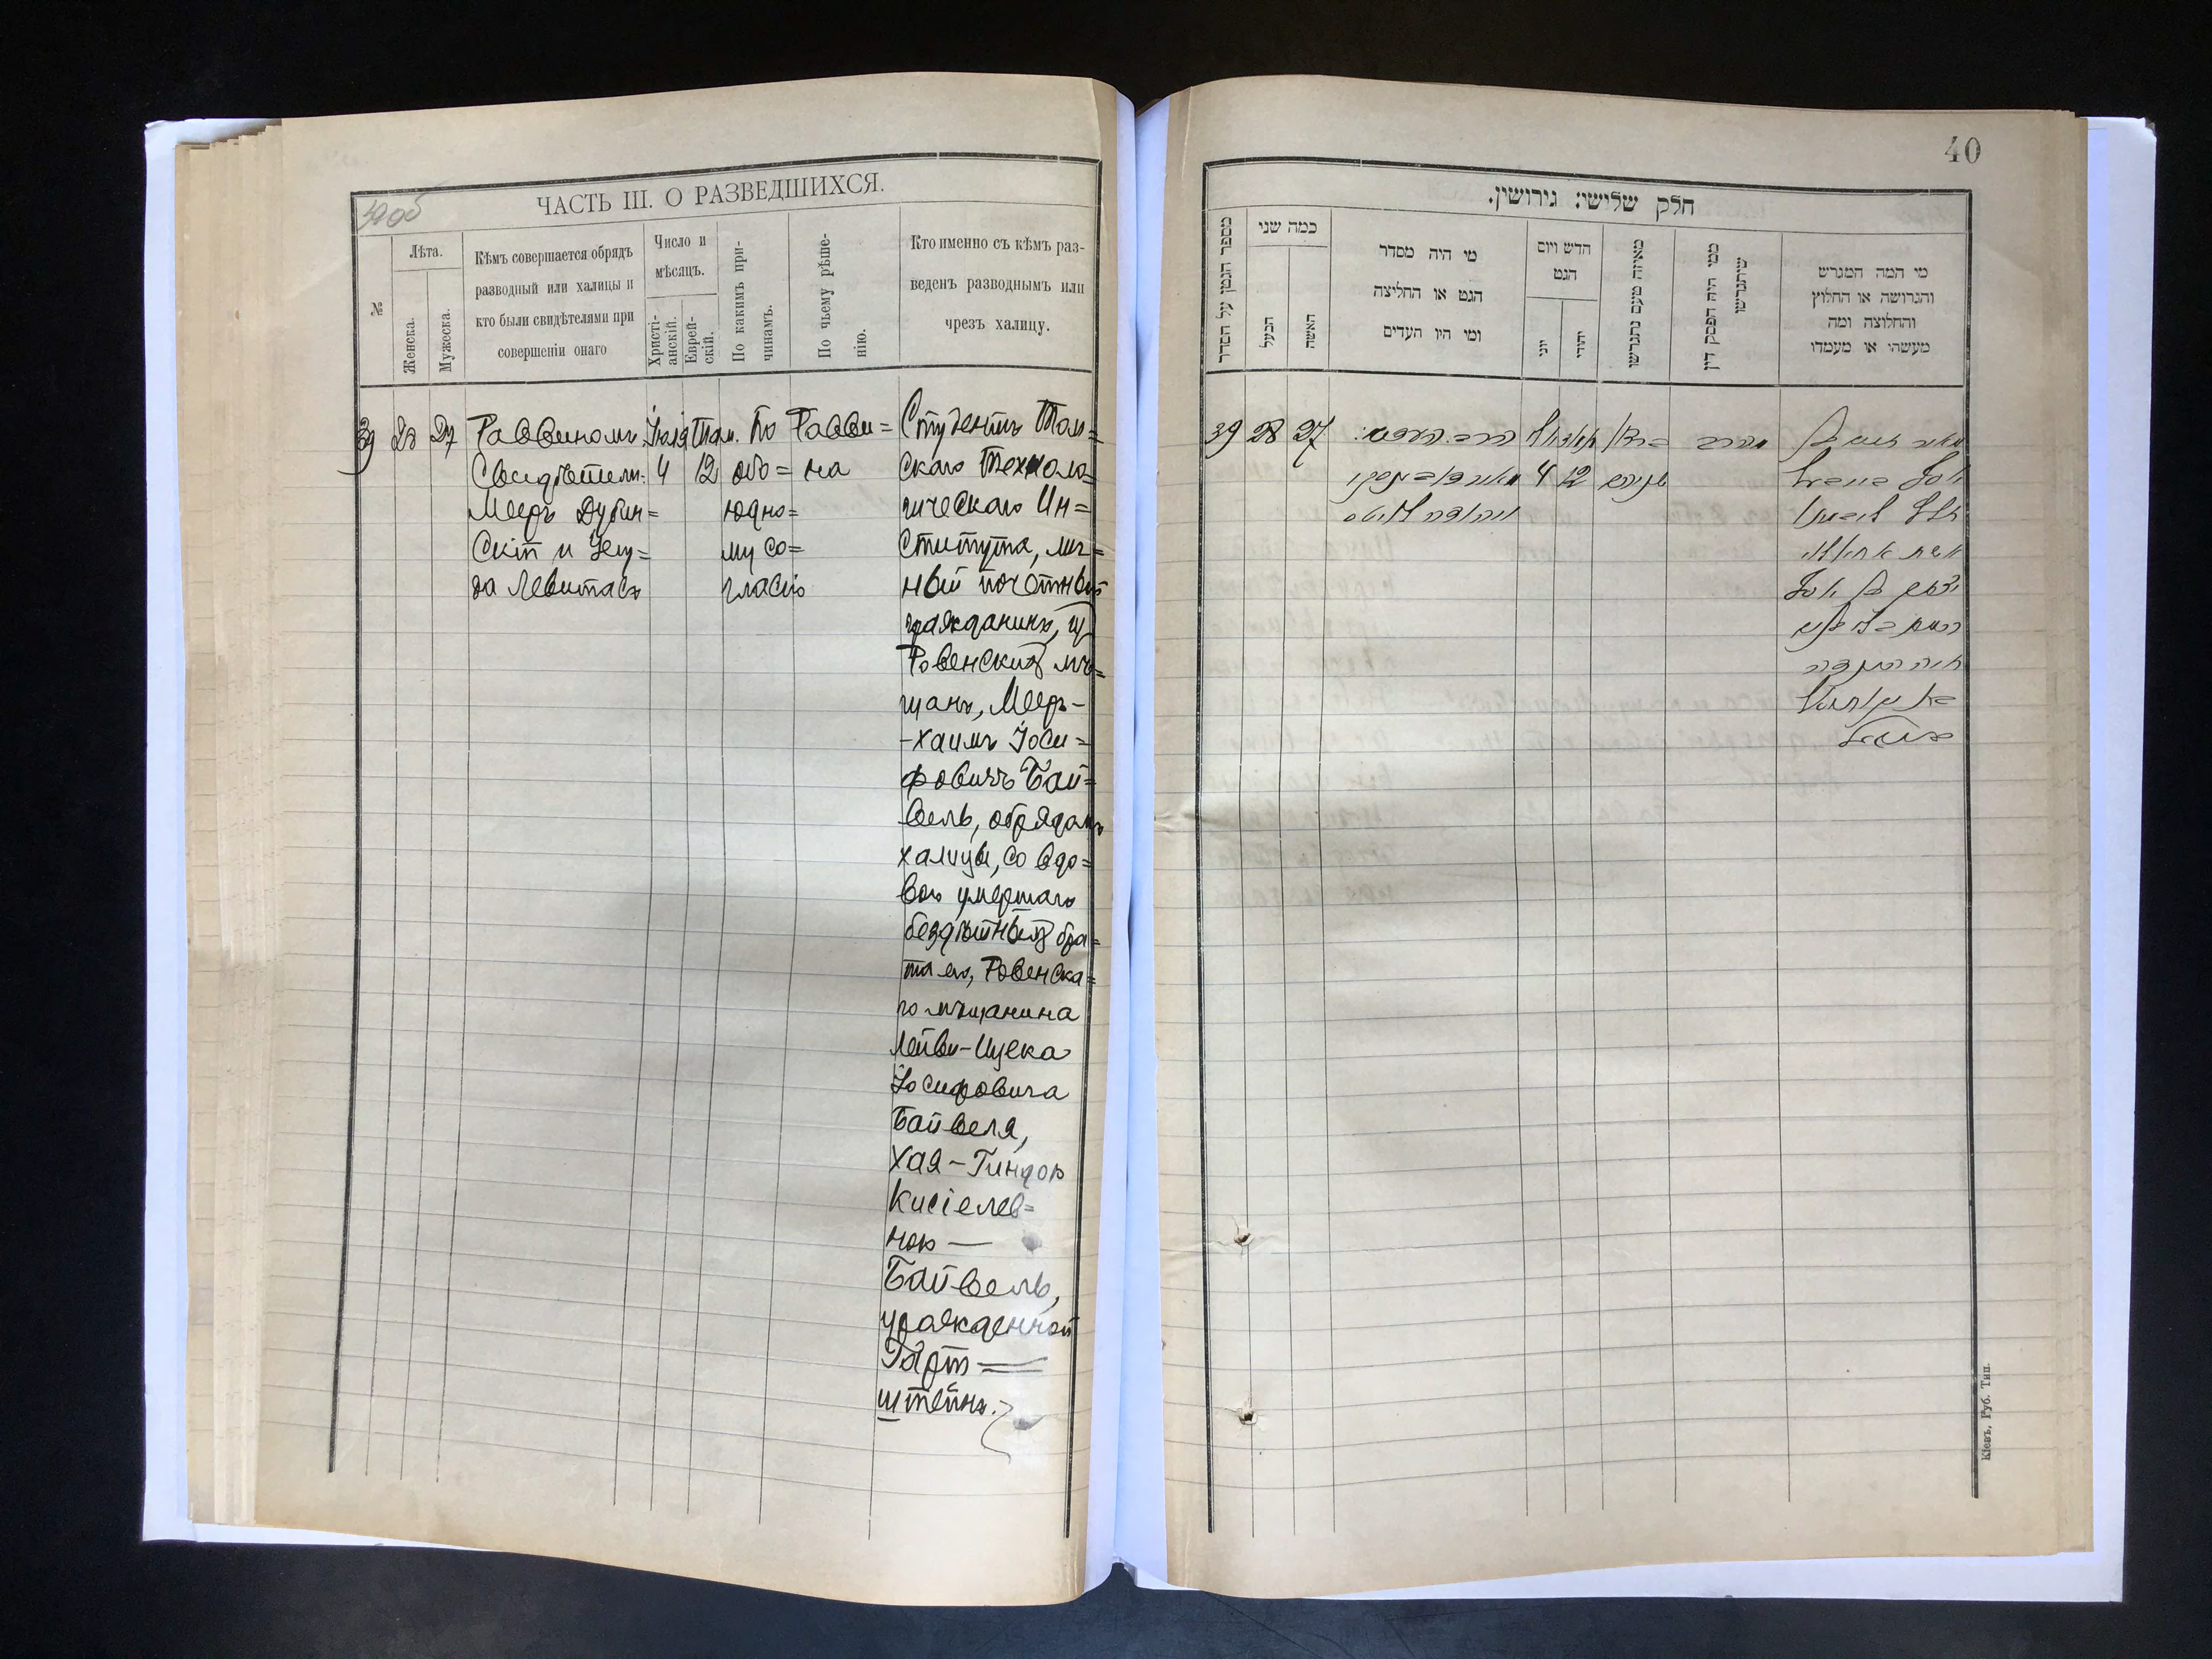 39 об
ЧАСТЬ III. О РАЗВЕДШИХСЯ.
№
Лѣта.
Женска.
Мужеска.
Кѣмъ совершается обрядъ
разводный или халицы и
кто были свидѣтелями при
совершеніи онаго
Число и
мѣсяцъ.
Христі-
анскій.
Еврей-
скій.
По какимъ при-
чинамъ.
По чьему рѣше-
нію.
Кто именно съ кѣмъ раз-
веденъ разводнымъ или
чрезъ халицу.
39 28 27
Раввиномъ.
Свидѣтели:
Мееръ Дубин=
скій и Іегу=
да Левитасъ
Іюля
4
Там.
12
По
обо=
юдно=
му со=
гласію
Равви=
на
Студентъ Том=
скаго Техноло=
гическаго Ин=
ститута, лич=
ный почетный
гражданинъ, из
Ровенскихъ мѣ=
щанъ, Мееръ-
-Хаимъ Іоси=
фовичъ Бай=
вель, обрядомъ
халицы, со вдо=
вою умершаго
бездѣтнымъ бра=
та его, Ровенска=
го мѣщанина
Лейви-Ицека
Іосифовича
Байвеля,
Хая-Гиндою
Кисіелев=
ною —
Байвель,
урожденной
Гарт=
штейнъ.
40
חלק שלישי: גירושין.
מספר הגטין על הסדר
כמה שני
הבעל
האשה
מי היה מסדר
הגט או החליצה
ומי היו העדים
חדש ויום
הגט
יוני
יהודי
מאיזה טעם נתגרשו
ממי היה הפסק דין
שיתגרשו
מי המה המגרש
והגרושה או החלוץ
והחלוצה ומה
מעשהו או מעמדו
39 28 27
4 12
Кіевъ, Губ. Тип.